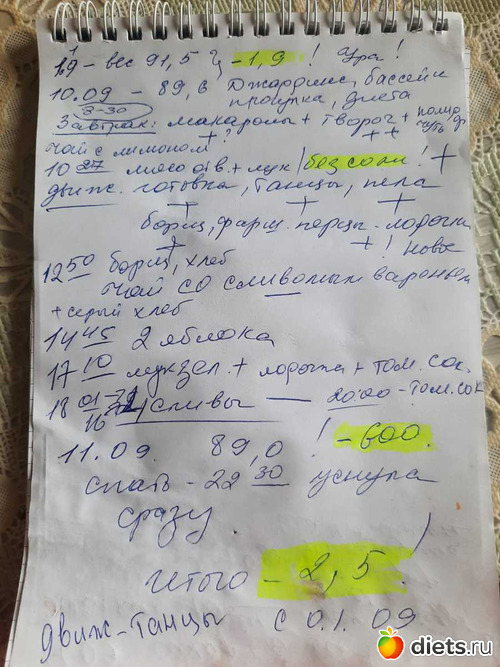 1.09 - вес 91,5 -1,9! Ура!
10.09 - 89,6 Джардинс, бассейн
прогулка, диета
8-30
Завтрак: макароны + творог + помидор
+? ++
чай с лимоном
10 27 мясо отв. + лук / без соли! +
движ. готовка, танцы, пела
+ + +
борщ, фарш. перцы - лодочки
+ +! новое
12 50 борщ, хлеб
чай со сливовым вареньем
+ серый хлеб
14 45 2 яблока
17 10 лук зел. + лодочка + том. сок.
18 01 - сливы — 20:00 - том. сок
11.09. 89,0! -600.
спать - 22 30 уснула
сразу
итого - 2,5!
движ - танцы с 01.09
diets.ru